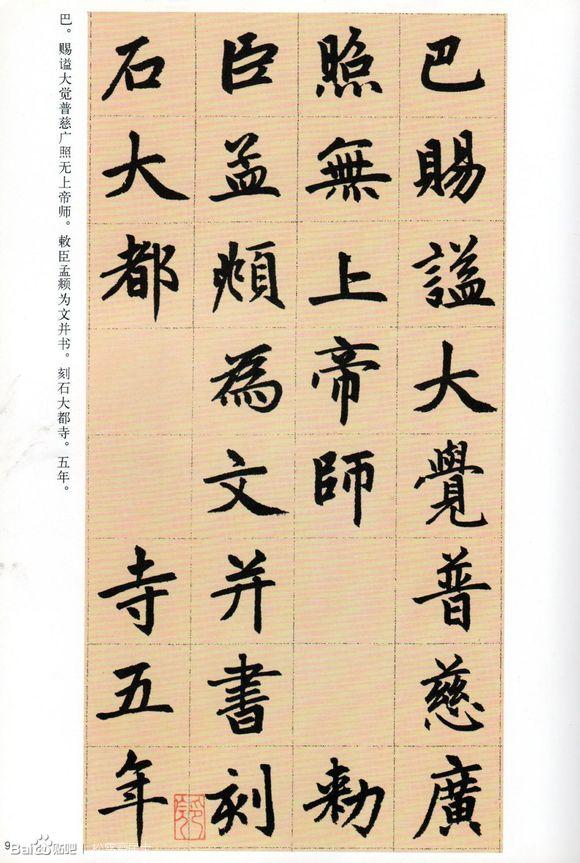 巴賜謚大覺普慈廣
照無上帝師 勑
臣孟頫為文并書刻
石大都 寺五年
巴。赐谥大觉普慈广照无上帝师。敕臣孟頫为文并书。刻石大都寺。五年。
9
Bai 贴吧